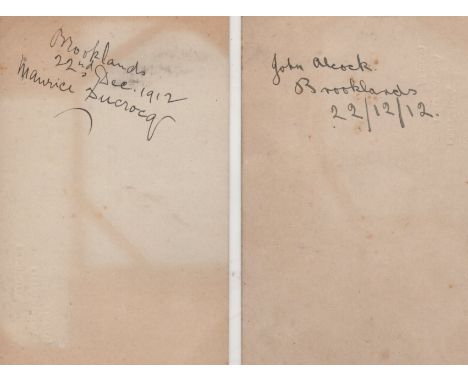 Brooklands
22nd Dec. 1912
Maurice Ducrocq
John Alcock.
Brooklands
22/12/12.